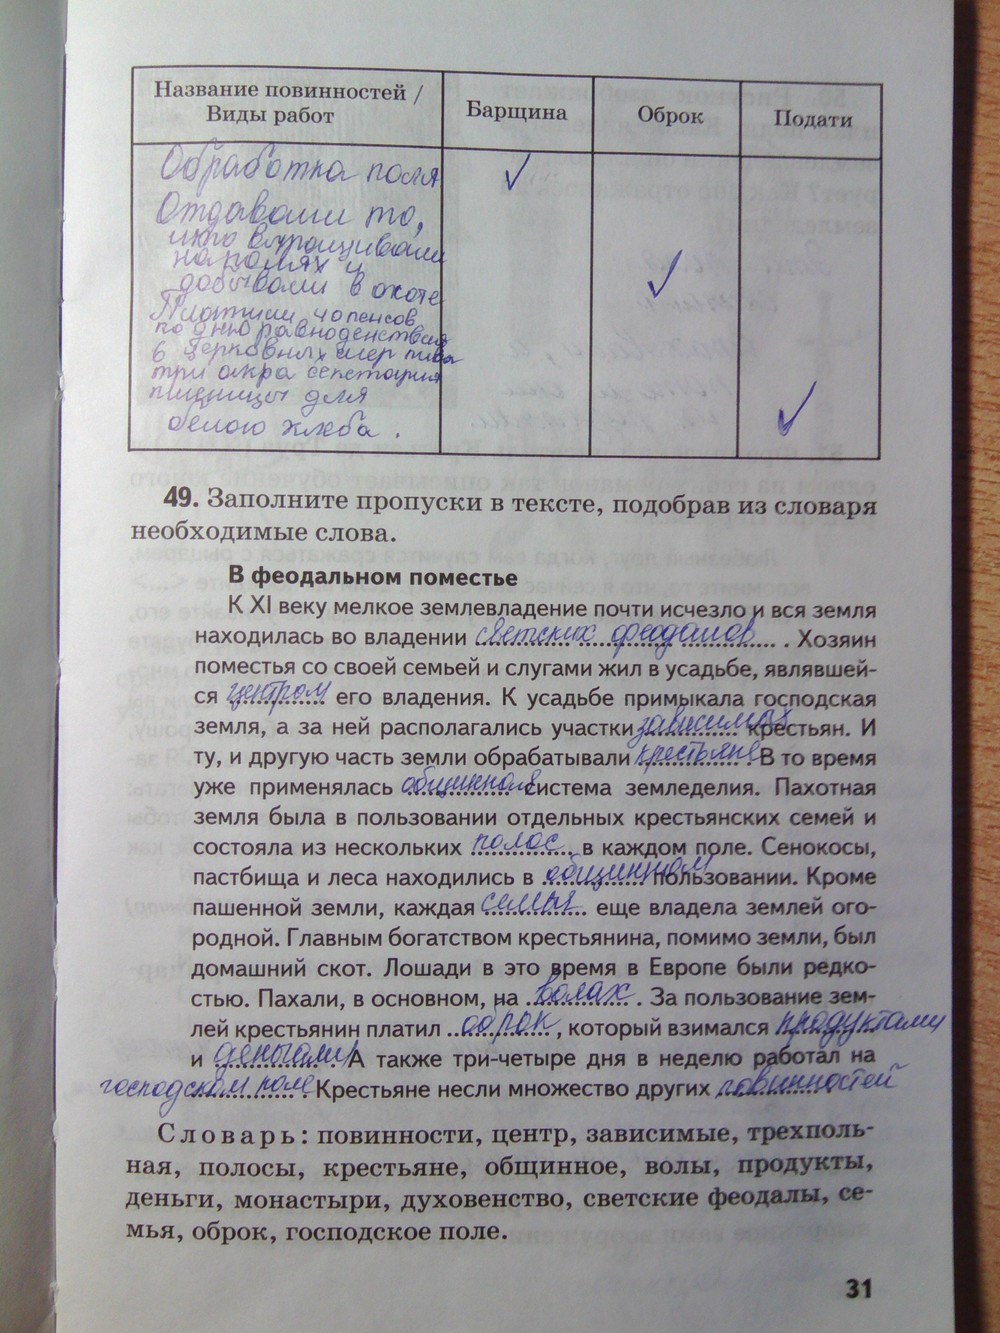 Название повинностей /
Виды работ
Барщина
Оброк
Подати
Обработка поля
Отдавали то,
что выращивали
на полях и
добывали в охоте
Платили 10 пенсов
по дню равноденствия
6 церковных мер пива
три акра
пшеницы для
белого хлеба.
49. Заполните пропуски в тексте, подобрав из словаря
необходимые слова.
В феодальном поместье
К XI веку мелкое землевладение почти исчезло и вся земля
находилась во владении светских феодалов. Хозяин
поместья со своей семьей и слугами жил в усадьбе, являвшей-
ся центром его владения. К усадьбе примыкала господская
земля, а за ней располагались участки зависимых крестьян. И
ту, и другую часть земли обрабатывали крестьяне. В то время
уже применялась общинная система земледелия. Пахотная
земля была в пользовании отдельных крестьянских семей и
состояла из нескольких полос в каждом поле. Сенокосы,
пастбища и леса находились в общинном пользовании. Кроме
пашенной земли, каждая семья еще владела землей ого-
родной. Главным богатством крестьянина, помимо земли, был
домашний скот. Лошади в это время в Европе были редко-
стью. Пахали, в основном, на волах. За пользование зем-
лей крестьянин платил оброк, который взимался продуктами
и деньгами. А также три-четыре дня в неделю работал на
господском поле. Крестьяне несли множество других повинностей.
Словарь: повинности, центр, зависимые, трехполь-
ная, полосы, крестьяне, общинное, волы, продукты,
деньги, монастыри, духовенство, светские феодалы, се-
мья, оброк, господское поле.
31